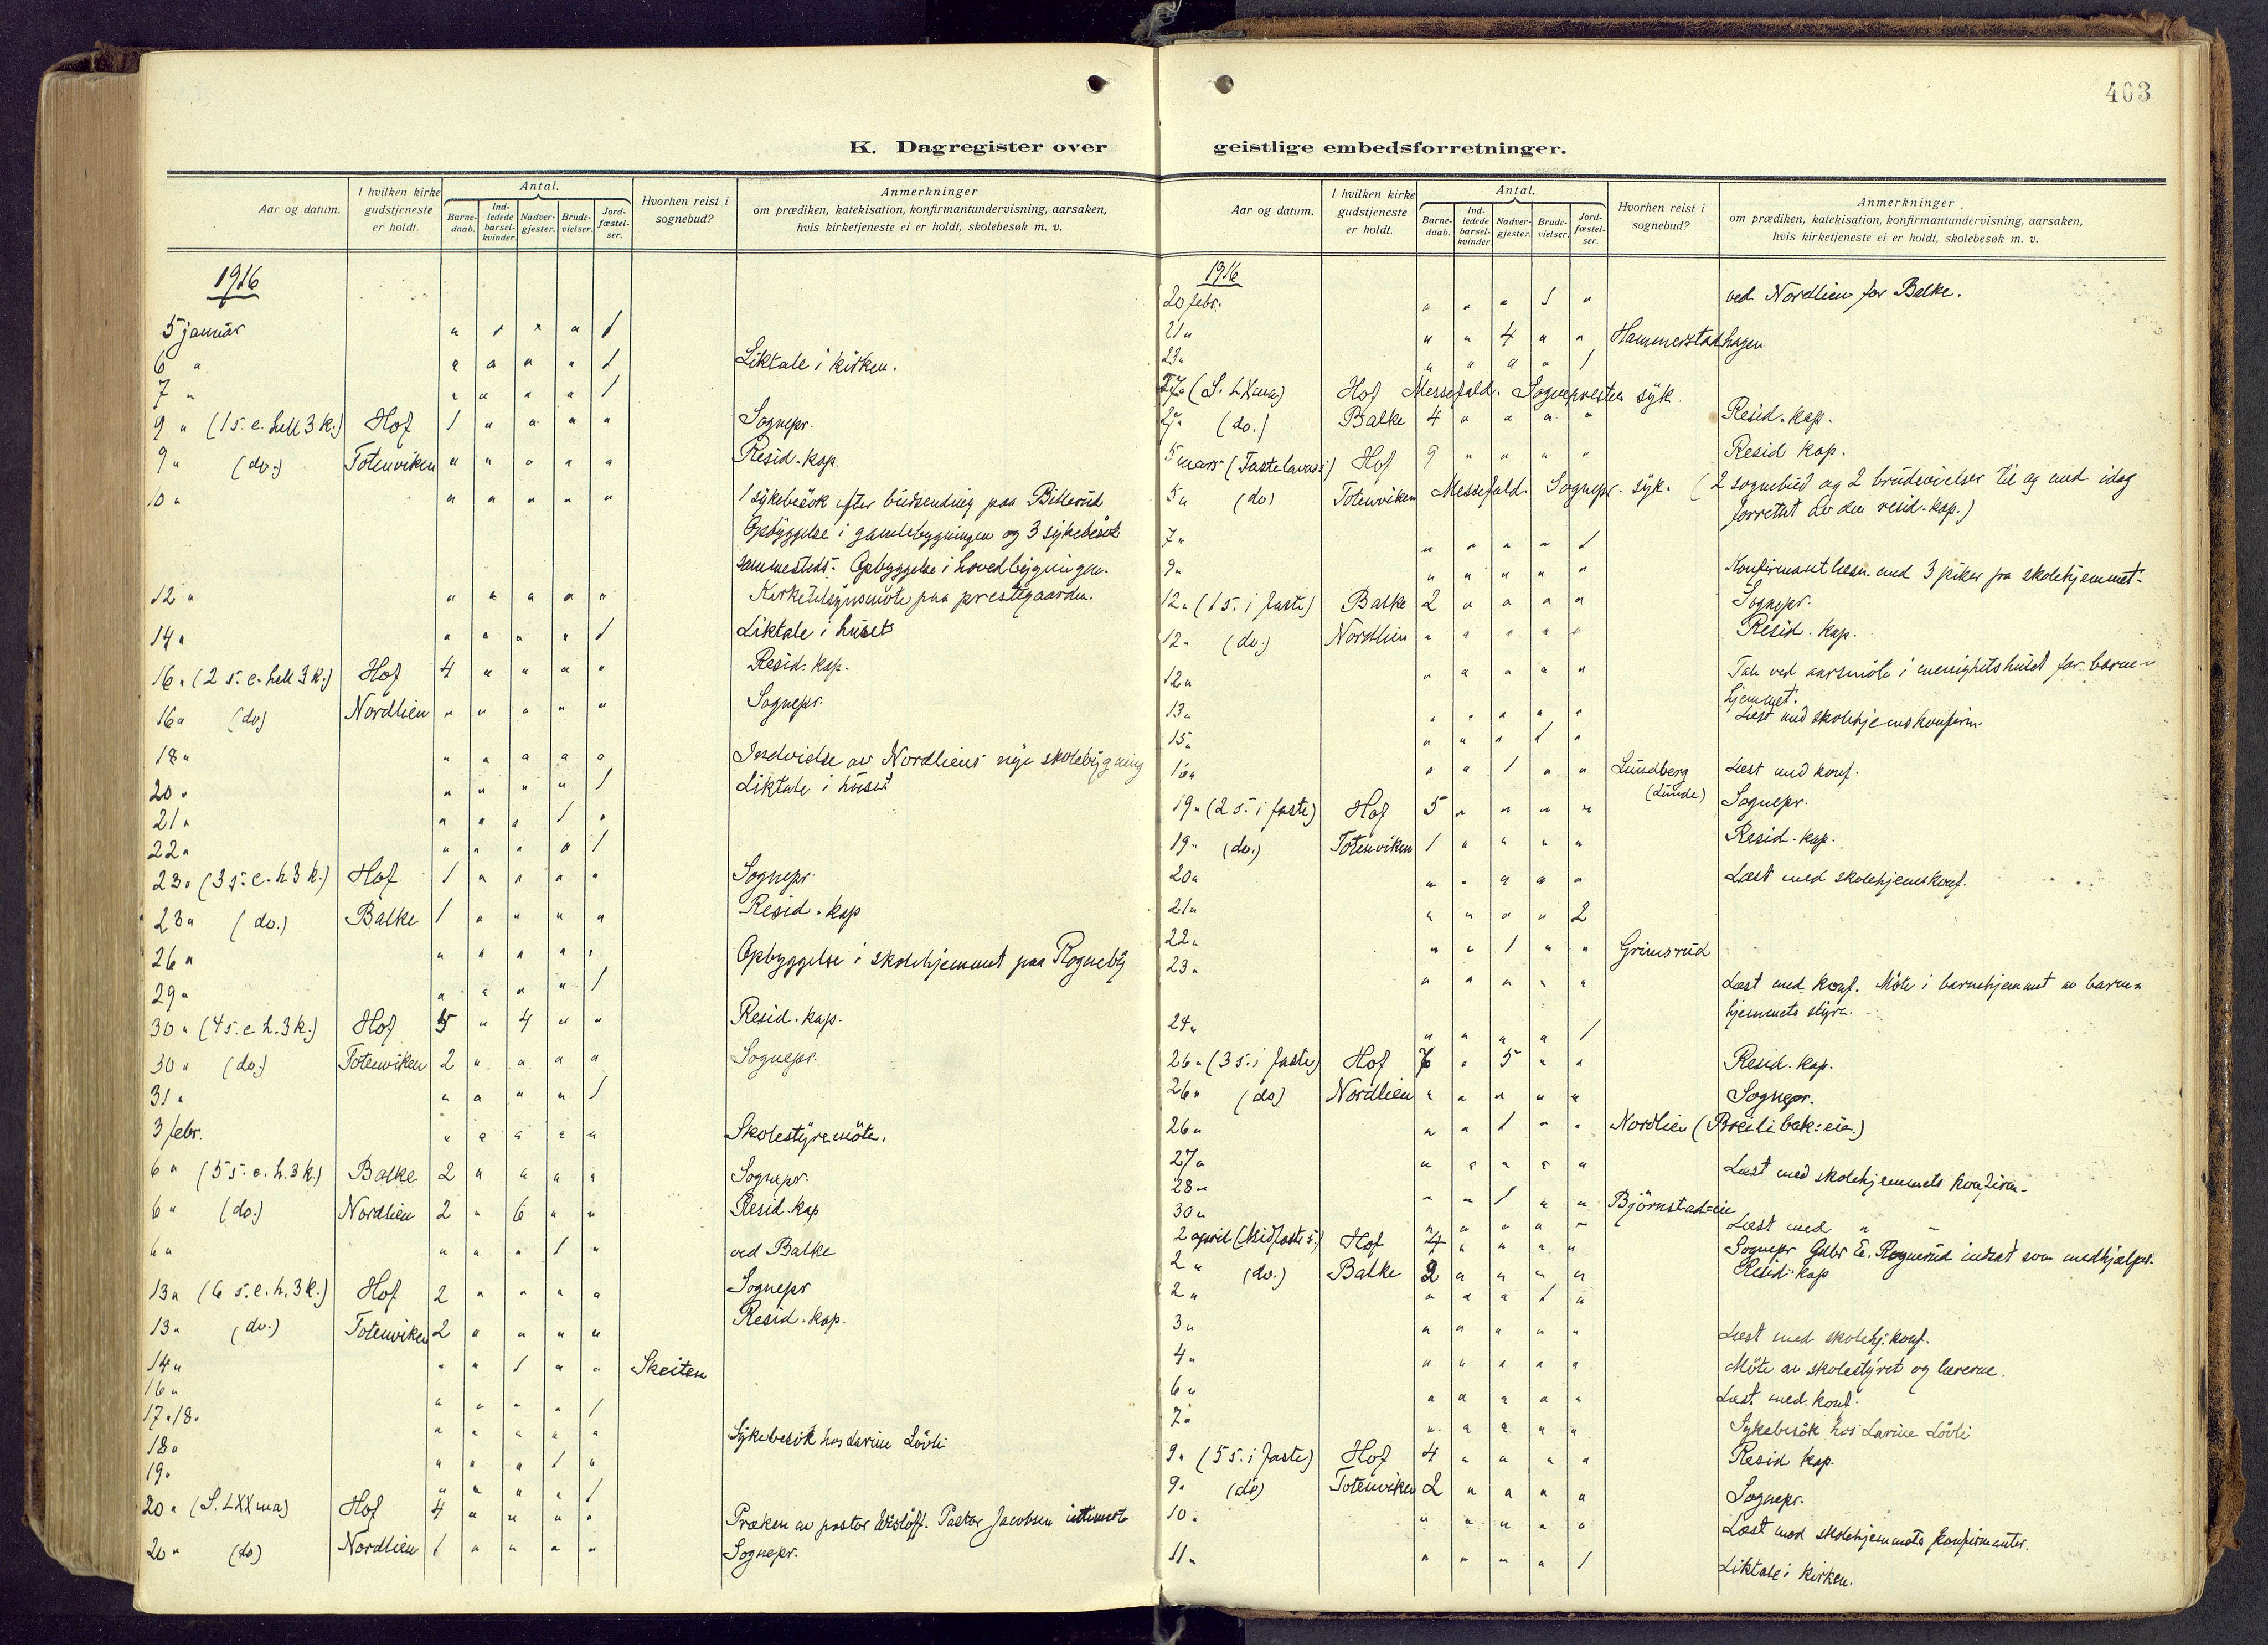 403
K. Dagregister over
Aar og datum. I hvilken kirke gudstjeneste er holdt. Antal. Barne-daab. Ind-ledede barsel-kvinder. Nadver-gjester. Brude-vielser. Jord-fæstel-ser. Hvorhen reist i sognebud? Anmerkninger om prædiken, katekisation, konfirmantundervisning, aarsaken, hvis kirketjeneste ei er holdt, skolebesøk m. v.
1916
5 januar " " " " 1
6 " " " " " 1 Liktale i kirken.
7 " " " " " 1
9 " (1 s. e. hell 3 k.) Hof 1 " " " " Sognepr.
9 " (do.) Totenviken " " " " " Resid. kap.
10 " " " " " " 1 sykebesök efter budsending paa Billerud
Opbyggelse i gamlebygningen og 3 sykebesök
sammesteds. Opbyggelse i hovedbygningen.
12 " " " " " " Kirketilsynsmöte paa prestegaarden.
14 " " " " " 1 Liktale i huset
16 " (2 s. e. hell 3 k.) Hof 4 " " " " Resid. kap.
16 " (do) Nordlien " " " " " Sognepr.
18 " " " " " " Indvielse av Nordliens nye skolebygning
20 " " " " " 1 Liktale i huset
21 " " " " 1 "
22 " " " " " 1
23 " (3 s. e. h. 3 k.) Hof 1 " " " " Sognepr.
23 " (do.) Balke 1 " " " " Resid. kap
26 " " " " " " Opbyggelse i skolehjemmet paa Rogneby
29 " " " " " 1
30 " (4 s. e. h. 3 k.) Hof 5 " 4 " " Resid. kap.
30 " (do.) Totenviken 2 " " " " Sognepr.
31 " " " " " 1
3 febr. " " " " " Skolestyremöte.
6 " (5 s. e. h. 3 k.) Balke 2 " " " " Sognepr.
6 " (do.) Nordlien 2 " 6 " " Resid. kap
6 " " " " 1 " ved Balke
13 " (6 s. e. h. 3 k.) Hof 2 " " " " Sognepr
13 " (do.) Totenviken 2 " " " " Resid. kap.
14 " " " 1 " " Skeiten
16 "
17 " 18 " " " " " 1
18 " " " " " " Sykebesök hos Larine Lövli
19 " " " " 1 "
" " " " 1
20 " (S. LXX ma) Hof 4 " " " " Præken av pastor . Pastor Jacobsen
20 " (do) Nordlien 1 " " " " Sognepr.
geistlige embedsforretninger.
Aar og datum. I hvilken kirke gudstjeneste er holdt. Antal. Barne-daab. Ind-ledede barsel-kvinder Nadver-gjester. Brude-vielser. Jord-fæstel-ser. Hvorhen reist i sognebud? Anmerkninger. om prædiken, katekisation, konfirmantundervisning, aarsaken, hvis kirketjeneste ei er holdt, skolebesøk m. v.
1916
20 febr. " " " 1 " ved Nordlien for Balke.
21 " " " 4 " " Hammerstadhagen
23 " " " " " 1
27 " (S. LX ma) Hof Messefald. Sognepresten syk.
27 " (do.) Balke 4 " " " " Resid. kap.
5 mars (Fastelavnss) Hof 9 " " " " Resid kap.
5 " (do) Totenviken Messefald. Sognepr. syk. (2 sognebud og 2 brudevielser til og med idag
forrettet av den resid. kap.)
7 " " " " " 1
9 " " " " " " Konfirmantlæsn. med 3 piker fra skolehjemmet.
12 " (1 s. i faste) Balke 2 " " " " Sognepr.
12 " (do.) Nordlien " " " " " Resid. kap.
12 " " " " " " Tale ved aarsmöte i menighetshuset for barne-
hjemmet.
13 " " " " " " Læst med skolehjemskonfirm.
15 " " " " 1 "
16 " " " 1 " " Lundberg (Lunde) Læst med konf.
19 " (2 s. i faste) Hof 5 " " " " Sognepr.
19 " (do.) Totenviken 1 " " " " Resid. kap.
20 " " " " " " Læst med skolehjemskonf.
21 " " " " " 2
22 " " " 1 " " Grimsrud
23 " " " " " " Læst med konf. Möte i barnehjemmet av barne-
hjemmets styre.
24 " " " " " 1
26 " (3 s. i faste) Hof 7 " 5 " " Resid. kap.
26 " (do) Nordlien " " " " " Sognepr.
26 " " " 1 " " Nordlien (Breilibak: eie.)
27 " " " " " " Læst med skolehjemmets konfirm.
28 " " " 1 " " Björnstad-eie
30 " " " " " " Læst med " "
2 april (Midfaste s.) Hof 4 " " " " Sognepr Gulbr E. Rognerud indsat som medhjælper.
2 " (do.) Balke 2 " " " " Resid. kap
2 " " " " 1 "
3 " " " " " " Læst med skolehj. konf.
4 " " " " " " Möte av skolestyret og lærerne.
6 " " " " " " Læst med konf.
7 " " " " " " Sykebesök hos Larine Lövli
9 " (5 s. i faste) Hof 4 " " " " Resid kap.
9 " (do) Totenviken 2 " " " " Sognepr.
10 " " " " " " Læst med skolehjemmets konfirmanter.
11 " " " " " 1 Liktale i kirken.